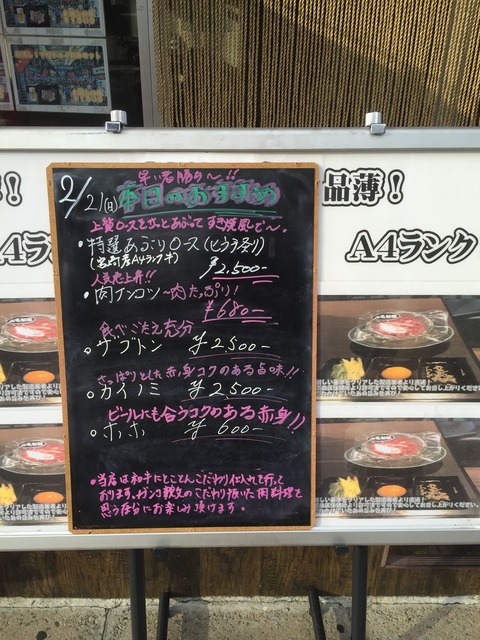 早い者勝ち〜!!
2/21(日) 本日のおすすめ
上質ロースをサッとあぶってすき焼風で〜。
・特選あぶりロース(とろろ炙り)
(宮崎産A4ランク牛)
¥2,500-
人気急上昇!!
・肉ナンコツ〜肉たっぷり!
¥680-
食べごたえ充分
。ザブトン ¥2,500-
さっぱりとした赤身コクのある旨味!!
。カイノミ ¥2,500-
ビールにも合うコクのある赤身!!
。ホホ ¥600-
・当店は和牛にとことんこだわり仕入れて行って
おります。ガンコ親父のこだわり抜いた肉料理を
思う存分にお楽しみ頂けます。
!!
品薄!
A4ラン
A4ランク